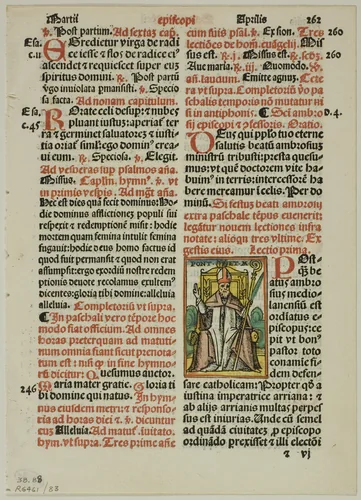 Martii
episcopi
Aprilis
262
℣. Post partum. Ad sextã cap̃.
Esa.
c.11
Egredietur virga de radi
ce iesse ⁊ flos de radice ei⁹
ascendet ⁊ requiescet super eum
spiritus domini. ℟. Post partũ
ṽgo inuiolata p̃mansisti. ℣. Specio
sa facta. Ad nonam capitulum.
Esa.
c.45
Rorate celi desup̱: ⁊ nubes
pluant iustũ: aperiat̃ ter
ra ⁊ germinet saluatorẽ: ⁊ iusti
tia oriat̃ simĩ: ego domin⁹ crea
ui eum. ℟. Speciosa. ℣. Elegit.
Ad vesperas iup̱ psalmos añã.
Missus. Caplm̃. hym⁹. ℣. vt
in primis vesp̃is. Ad mg̃t̃ añã.
Hec est dies quã fecit dominus: ho
die dominus afflictionẽ populi sui
respexit ⁊ redemptionẽ misit: hodie
mortem quam femina intulit femina
fugauit: hodie deus homo factus id
quod fuit permansit ⁊ quod non erat
assumpsit: ergo exordiũ nostre redem
ptionis deuote recolamus exultem⁹
dicentes: gloria tibi domine: alleluia
alleluia. Completoriũ vt supra.
⁋ In paschali vero tẽpore hoc
modo fiat officium. Ad omnes
horas preterquam ad matuti
num omnia fiant sicut prenota
tum est: nisi ꝙ in fine hymno
rũ dicitur. Quesumus auctor.
246
Maria mater gratie. Gloria ti
bi domine qui natus. In hym
nus eiusdem metri: ⁊ responso
ria ad horas dici ⁊ ℣. dicuntur
cũ Alleluia. Ad matuĩ. inuitato.
hym. vt supra. Tres prime añe
cum suis psal. ℣. Exson. Tres
260
lectiões de hom. euãgelij. Mis
sus est. ℟. Aue maria. ij. ℟. scđz.
260
Missus est. iij. Nuomodo. ℣.
añ. laudum. Emitte agnũ. Cete
ra vt supra. Completoriũ ṽo pa
schalis temporis nõ mutatur ni
si in antiphonis. ⁋ Scĩ ambro
D.4.
sij episcopi ⁊ ↄfessoris. Oratio.
Deus qui pp̱lo tuo eterne
salutis beatũ ambrosiuʒ
ministrũ tribuisti: presta quesu-
mus: vt quẽ doctorem vite ha-
buim⁹ in terris: intercessorẽ ha
bere mereamur i celis. Per do
minũ. Si festus beati ambrosij
extra paschale tẽpus euenerit:
legãtur nouem lectiones infra
notate: alioqñ tres vltime. Ex
gestis eius. Lectio prima.
PONT IFEX. M
Post-
q̃ʒ be
atus ambro
sius i medio
lanensiũ est
ordiatus e-
piscopus: ce
pit vt bon⁹
pastor toto
conamie fi-
dem defen-
sare catholicam: Propter qđ a
iustina imperatrice arriana: ⁊
ab alijs arrianis multas perpes
sus est iniurias. Unde cũ semel
ad quãdã ciuitatẽ ꝓ episcopo
ordinãdo prexisset ⁊ illi electõi
⁊ vj
38.88
R6461/88